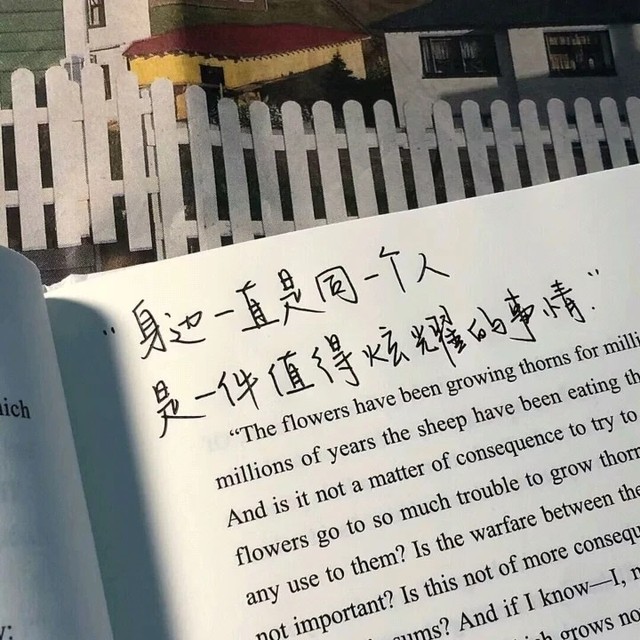 "身边一直是同一个人
是一件值得炫耀的事情."
"The flowers have been growing thorns for
millions of years the sheep have been eating
And is it not a matter of consequence to try to
flowers go to so much trouble to grow
any use to them? Is the warfare between the
not important? Is this not of more
And if I know—I,
grows